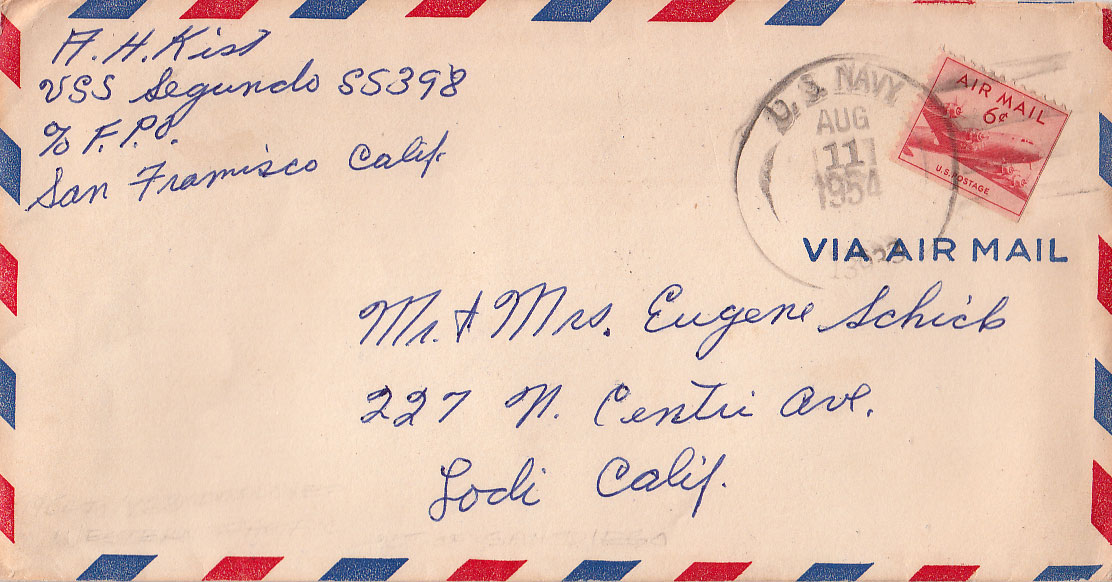 A. H. Kist
USS Segundo SS398
c/o F.P.O.
San Framisco Calif.
U. S. NAVY
AUG
11
1954
AIR MAIL
6¢
U.S. POSTAGE
VIA AIR MAIL
Mr. & Mrs. Eugene Schieb
227 N. Centri Ave.
Lodi Calif.